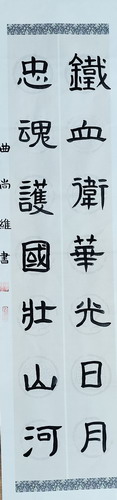 鐵血衛華光日月
忠魂護國壯山河
曲尚維書